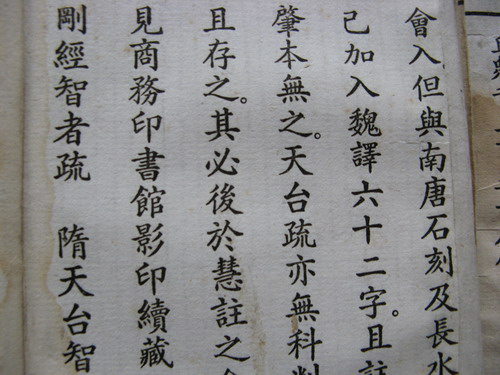 會入但與南唐石刻及長水
已加入魏譯六十二字。且註
肇本無之。天台疏亦無科判
且存之。其必後於慧註之
見商務印書館影印續藏
剛經智者疏 隋天台智